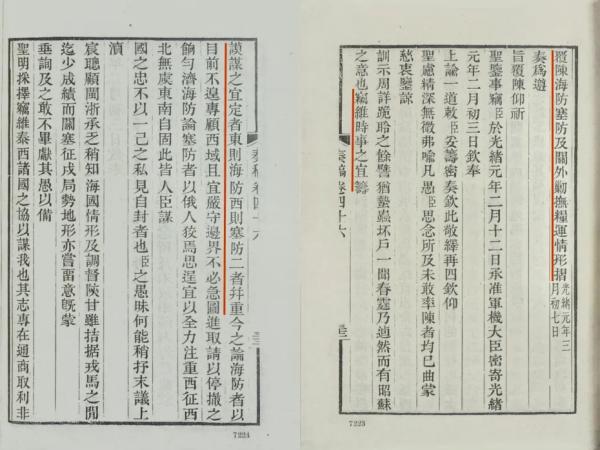 覆陳海防塞防及關外勦撫糧運情形摺 光緒元年三月初七日
奏爲遵
旨覆陳仰祈
聖鑒事竊臣於光緒元年二月十二日承准軍機大臣密寄光緒
元年二月初三日欽奉
上諭一道敕臣妥籌密奏欽此敬繹再四欽仰
聖慮精深無微弗喻凡愚臣思念所及未敢率陳者均已曲蒙
慈衷鑒諒
訓示周詳跪聆之餘譬猶蟄蟲坏戶一聞春霆乃逌然而有昭蘇
之意也竊維時事之宜籌
奏稿卷四十六
7223
謨謀之宜定者東則海防西則塞防二者幷重今之論海防者以
目前不遑專顧西域且宜嚴守邊界不必急圖進取請以停撤之
餉勻濟海防論塞防者以俄人狡焉思逞宜以全力注重西征西
北無虞東南自固此皆人臣謀
國之忠不以一己之私見自封者也臣之愚昧何能稍抒末議上
瀆
宸聰顧閩浙承乏稍知海國情形及調督陝甘雖拮据戎馬之閒
迄少成績而關塞征戍局勢地形亦嘗畱意旣蒙
垂詢及之敢不畢獻其愚以備
聖明採擇竊維泰西諸國之協以謀我也其志專在通商取利非
7224